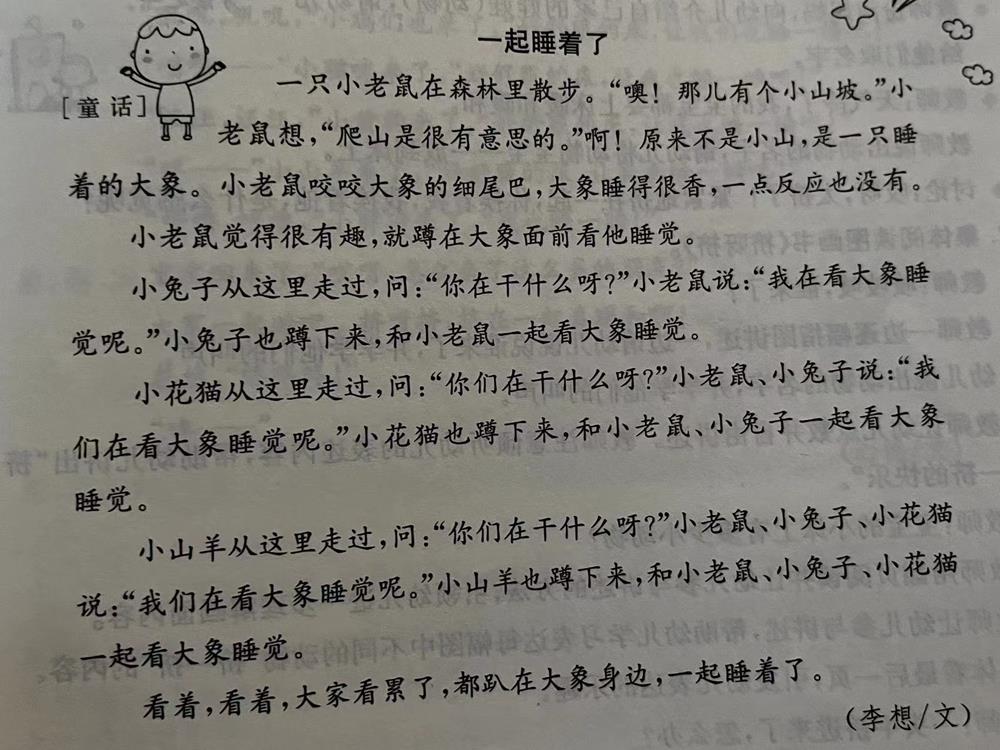 一起睡着了
[童话]
一只小老鼠在森林里散步。“噢！那儿有个小山坡。”小
老鼠想，“爬山是很有意思的。”啊！原来不是小山，是一只睡
着的大象。小老鼠咬咬大象的细尾巴，大象睡得很香，一点反应也没有。
小老鼠觉得很有趣，就蹲在大象面前看他睡觉。
小兔子从这里走过，问：“你在干什么呀？”小老鼠说：“我在看大象睡
觉呢。”小兔子也蹲下来，和小老鼠一起看大象睡觉。
小花猫从这里走过，问：“你们在干什么呀？”小老鼠、小兔子说：“我
们在看大象睡觉呢。”小花猫也蹲下来，和小老鼠、小兔子一起看大象
睡觉。
小山羊从这里走过，问：“你们在干什么呀？”小老鼠、小兔子、小花猫
说：“我们在看大象睡觉呢。”小山羊也蹲下来，和小老鼠、小兔子、小花猫
一起看大象睡觉。
看着，看着，大家看累了，都趴在大象身边，一起睡着了。
（李想/文）